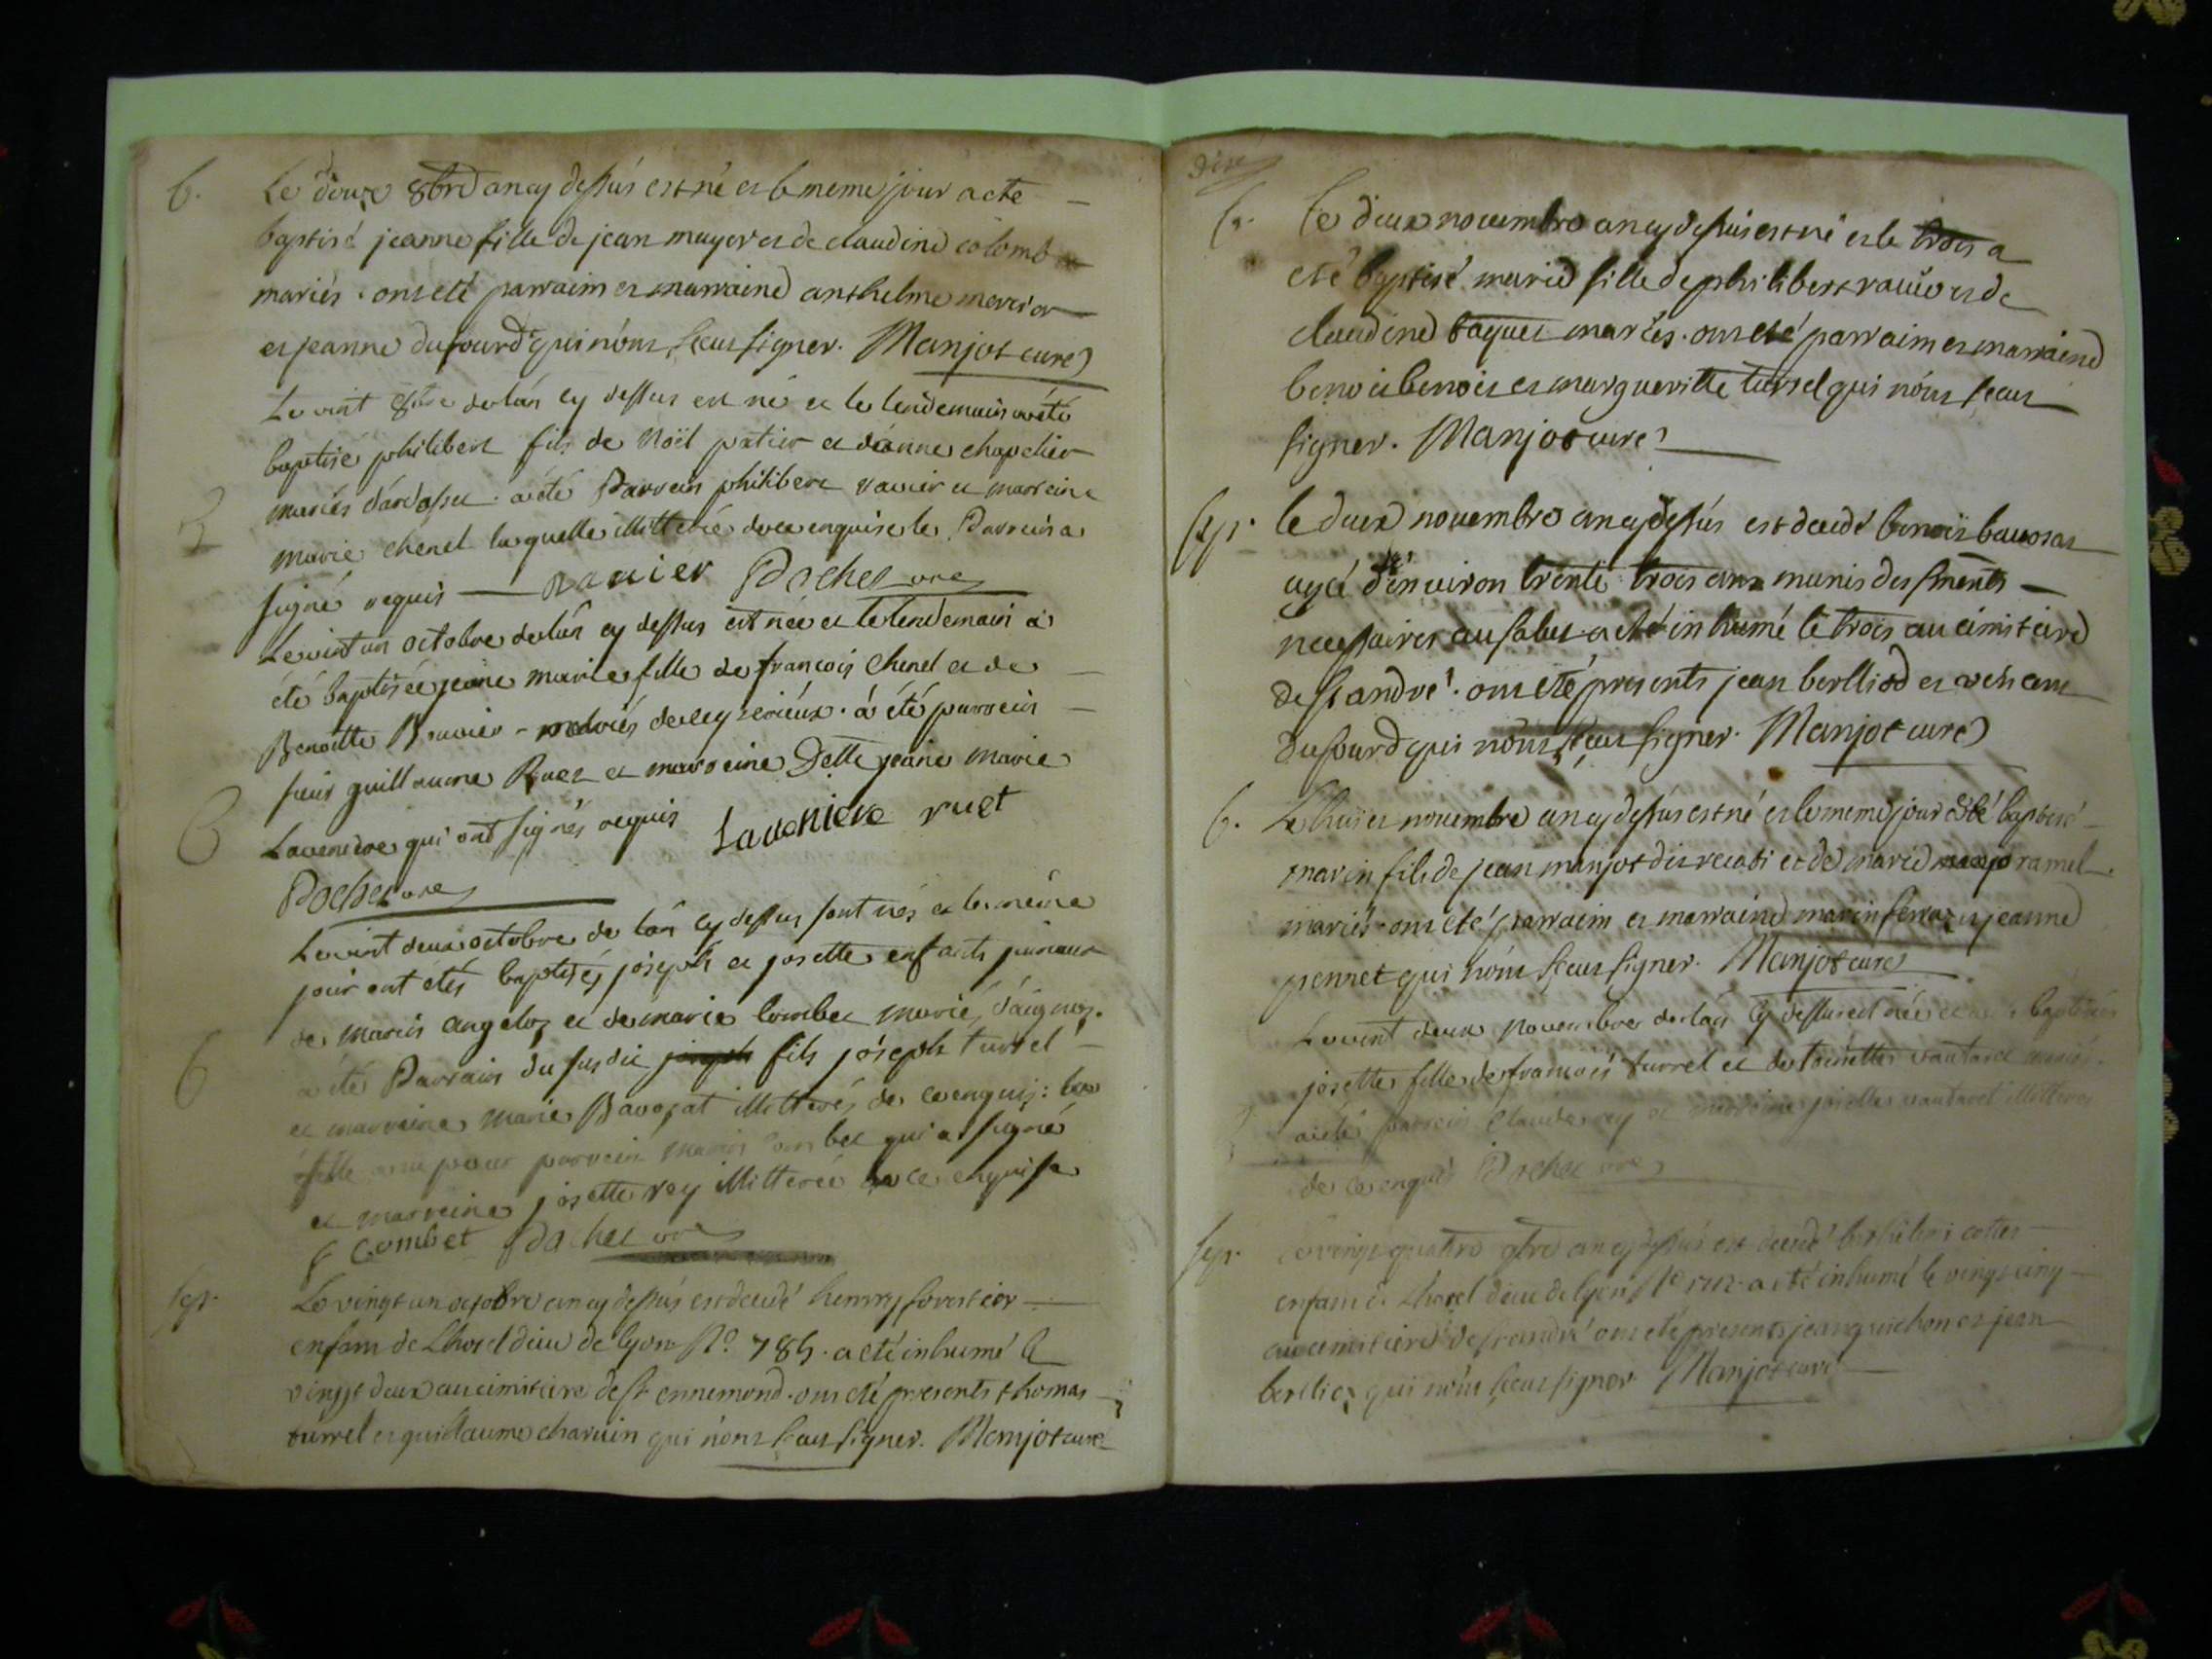 b. Le douze 8bre an cy dessus est né et le meme jour a eté
baptisé jeanne fille de jean mayer et de claudine colomb
mariés. ont eté parraim et marraine anthelme mercior
et jeanne dufourd qui n'ont sceus signer. Manjot curé
Le vint 8bre de l'an cy dessus est né et le lendemain a été
baptisé philibert fils de Noël patier et d'anne chapelier
B mariés d'ardosset. a été Parrein philibert ravier et marreine
marie chenel laquelle illitterée de ce enquise le Parrein a
signé requis ravier Pochet vre
Le vint un octobre de l'an cy dessus est née et le lendemain a
été baptisée jeane marie fille de francois chenel et de
Benoitte Bouvier mariés de ceyzerieux. a été parrein
sieur guillaume Ruet et marreine Delle jeane marie
B Laveniere qui ont signés requis Laveniere ruet
Pochet vre
Le vint deux octobre de l'an cy dessus sont nés et le même
jour ont étés baptisés joseph et josette enfants jumeaux
de marin angeloz et de marie combet mariés d'aignoz.
B a été Parrain du susdit joseph fils joséph turrel
et marreine marie Bavozat illitterés de ce enquis: la
fille a eu pour parrein marin combet qui a signé
et marreine josette rey illitterée de ce enquise
f Combet Pochet vre
sep. Le vingt un octobre an cy dessus est decedé henry forestier
enfant de Lhotel dieu de lyon No. 785. a eté inhumé le
vingt deux au cimitiere de st ennemond. ont eté presents thomas
turrel et guillaume charvin qui n'ont sceus signer. Manjot curé
b. Le deux novembre an cy dessus est né et le trois a
eté baptisé marie fille de philibert ravier et de
claudine baquet mariés. ont eté parraim et marraine
benoit benoit et margueritte turrel qui n'ont sceus
signer. Manjot curé
sep. le deux novembre an cy dessus est decedé benoit bavosat
agé d'environ trente trois ans munis des sments
necessaires au salut a eté inhumé le trois au cimitiere
de st andré. ont eté presents jean berlliod et
dufourd qui n'ont sceus signer. Manjot curé
b. Le huit novembre an cy dessus est né et le meme jour a eté baptisé
marin fils de jean manjot dit recati et de marie ramel
mariés. ont eté parraim et marraine marin ferraz et jeanne
pennet qui n'ont sceus signer. Manjot curé
Le vint deux novembre de l'an cy dessus est née et a été baptisée
josette fille de francois turrel et de toinette vautaret mariés.
B a été parrein Claude rey et marreine josette vautaret illitterés
de ce enquis Pochet vre
sep. Le vingt quatre 9bre an cy dessus est decedé berthelemi cottes
enfant de Lhotel dieu de lyon No 1712. a eté inhumé le vingt cinq
au cimitiere de st andré ont eté presents jean guichon et jean
berlliod qui n'ont sceus signer Manjot curé